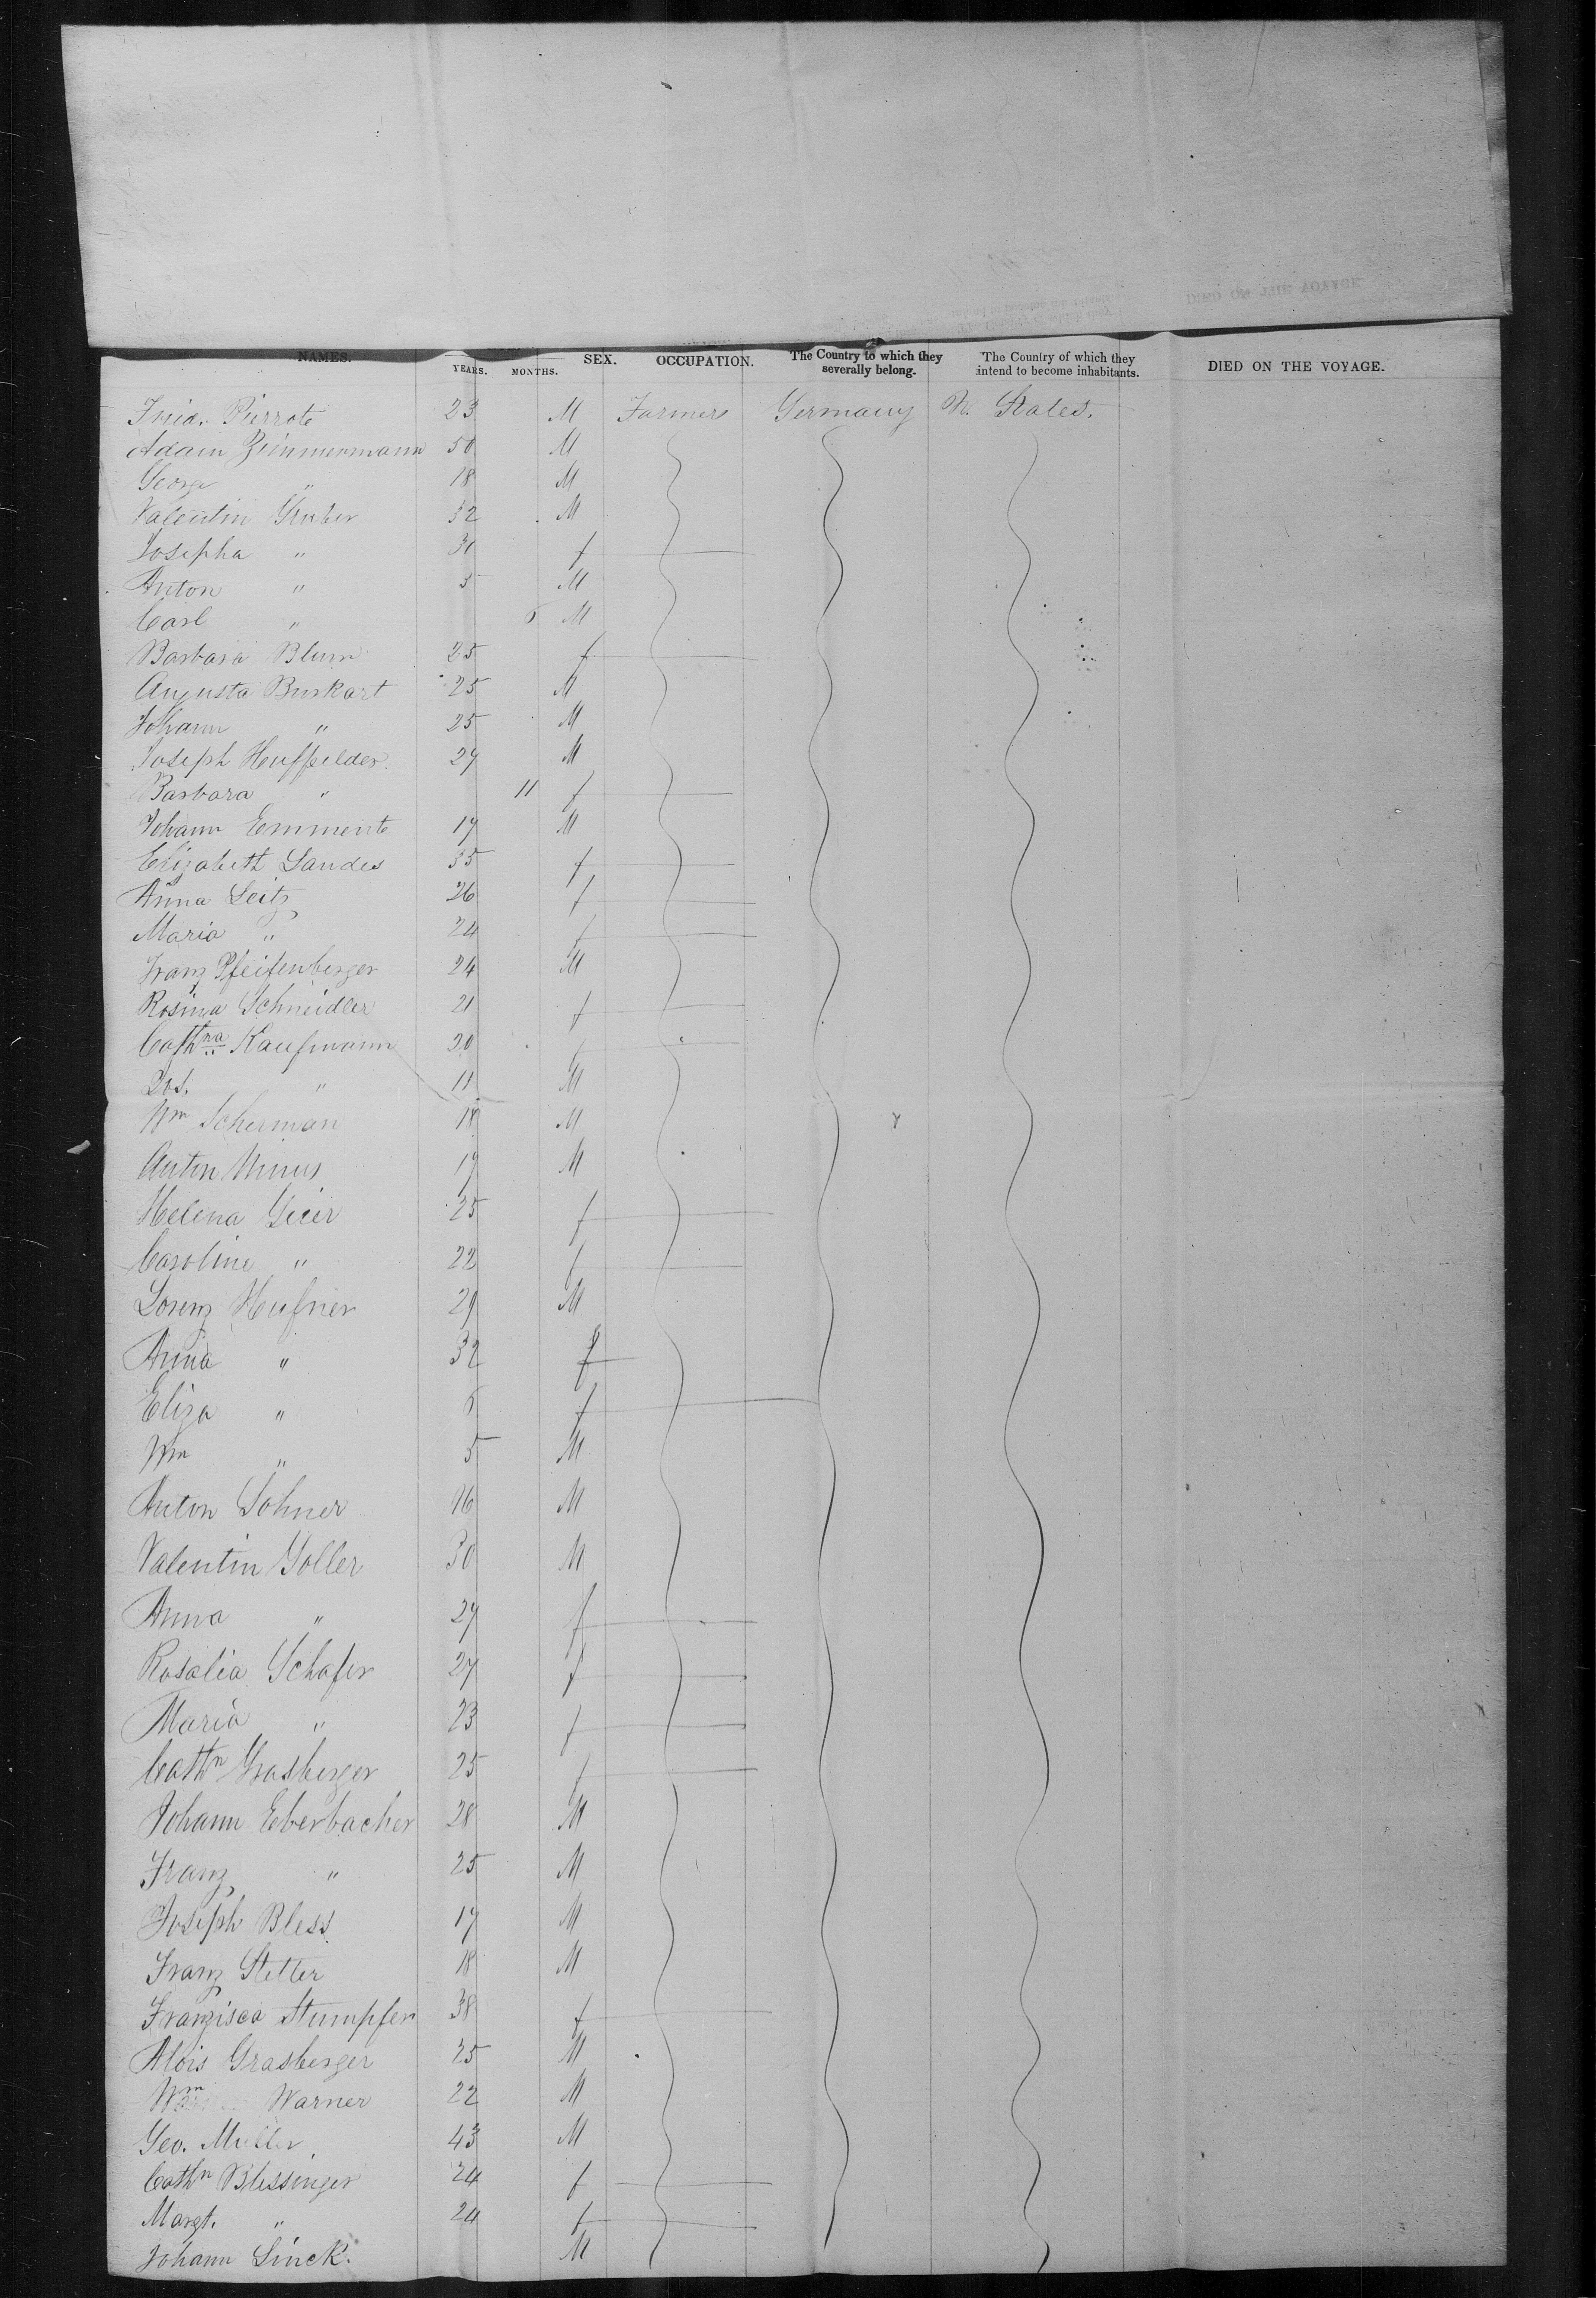 NAMES. YEARS. MONTHS. SEX. OCCUPATION. The Country to which they severally belong. The Country of which they intend to become inhabitants. DIED ON THE VOYAGE.
Fried. Pierrote 23 M Farmers Germany U. States.
Adam Zimmermann 50 M
George " 18 M
Valentin Gruber 32 M
Josepha " 31 f
Anton " 5 M
Carl " 6 M
Barbara Blum 25 f
Augusta Burkart 25 M
Johann " 25 M
Joseph Huffeilder 27 M
Barbara " 11 f
Johann Emmente 17 M
Elizabeth Landes 35 f
Anna Seitz 26 f
Maria " 24 f
Franz Pfeifenberger 24 M
Rosina Schneidler 21 f
Cathna Kaufmann 20 f
Jos. " 11 M
Wm Scherman 18 M
Anton Minus 17 M
Helena Geier 25 f
Caroline " 22 f
Lorenz Hufner 29 M
Anna " 32 f
Eliza " 6 f
Wm " 5 M
Anton Sohner 16 M
Valentin Goller 30 M
Anna " 27 f
Rosalia Schafer 27 f
Maria " 23 f
Cathn Grasberger 25 f
Johann Eberbacher 28 M
Franz " 25 M
Joseph Bless 17 M
Franz Stetter 18 M
Franzisca Stumpfer 38 f
Alois Grasberger 25 M
Wm Warner 22 M
Geo. Muller 43 M
Cathn Blessinger 24 f
Margt. " 24 f
Johann Linck. M